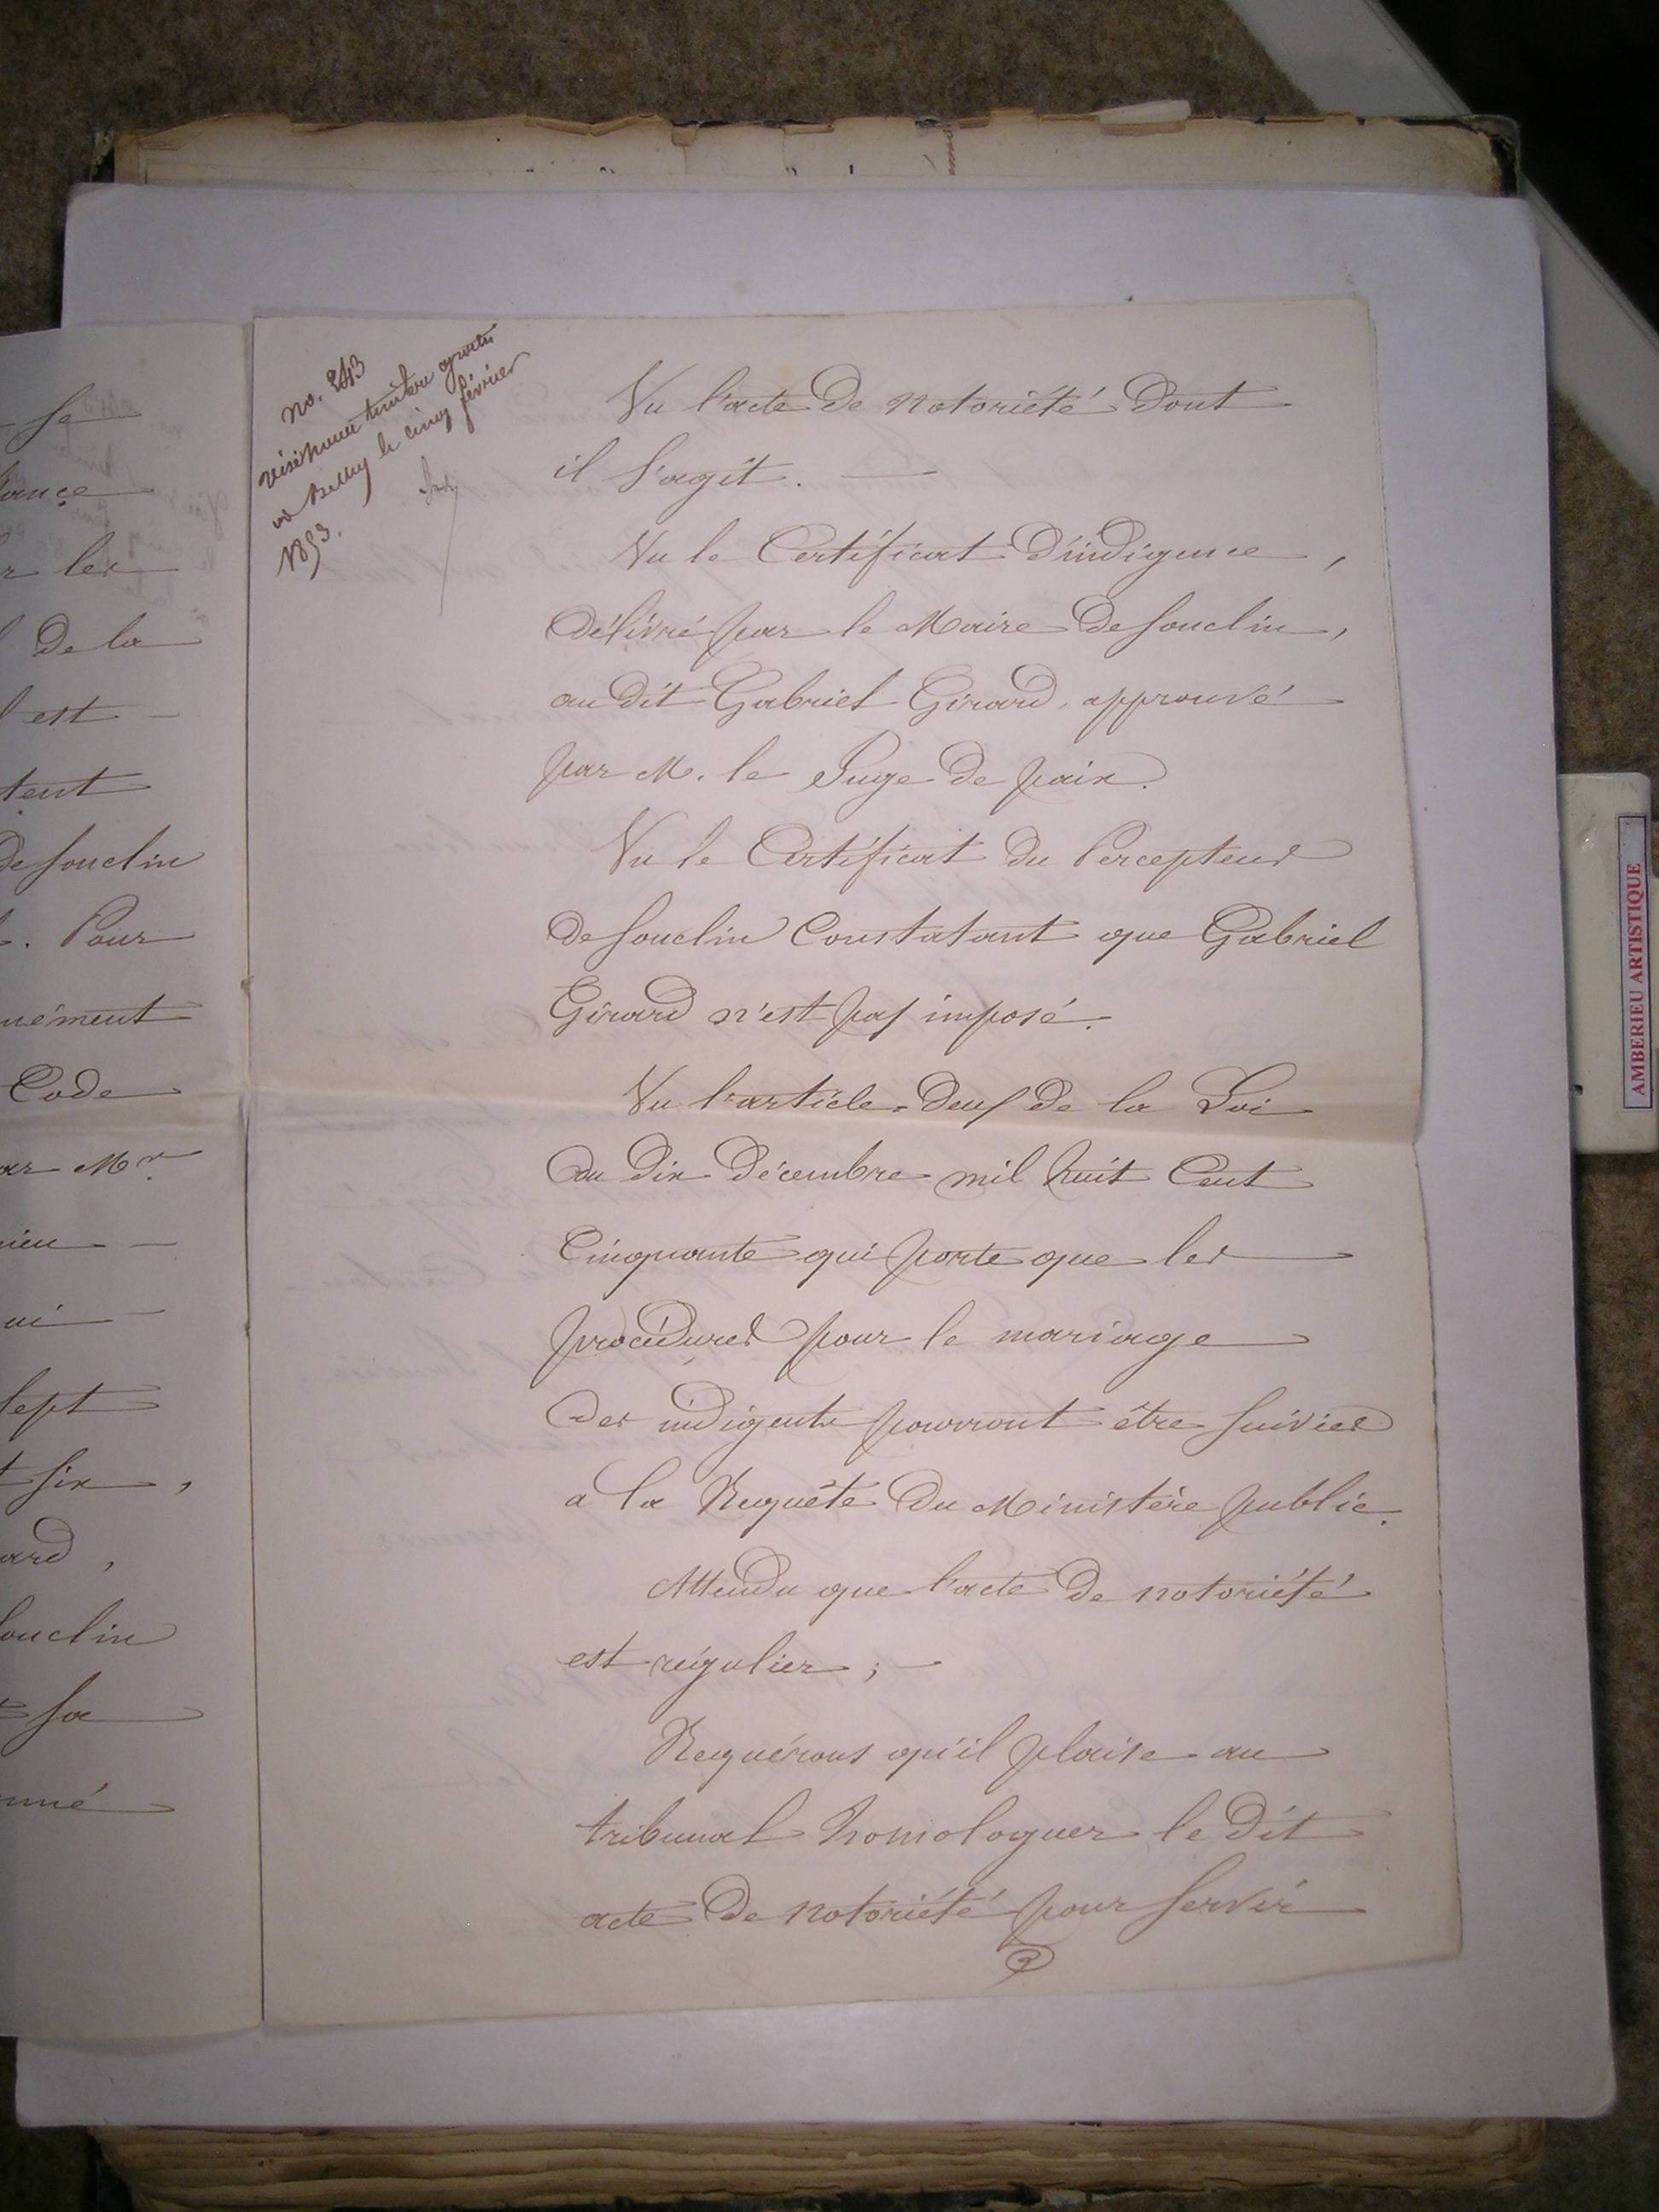 se
tance
r les
l De la
l est
tent
De Souclin
. Pour
nément
Code
ar Mr.
rieu
ui
Sept
t Six,
ard,
Souclin
Sa
nné
no. 243
visé pour timbre gratis
à Belley le cinq février
1853.
Vu l'acte De notoriété Dont
il S'agit.
Vu le Certificat D'indigence,
Délivré par le Maire De Souclin,
au Dit Gabriel Girard, approuvé
par M. le Juge De paix.
Vu le Certificat Du Percepteur
De Souclin Constatant que Gabriel
Girard n'est pas imposé.
Vu l'article Deux De la Loi
Du Dix Décembre mil huit Cent
Cinquante qui porte que les
procédures pour le mariage
Des indigents pourront être Suivies
a la Requête Du Ministère public.
Attendu que l'acte De notoriété
est régulier;
Requérons qu'il plaise au
tribunal homologuer le Dit
acte De notoriété pour Servir
AMBERIEU ARTISTIQUE